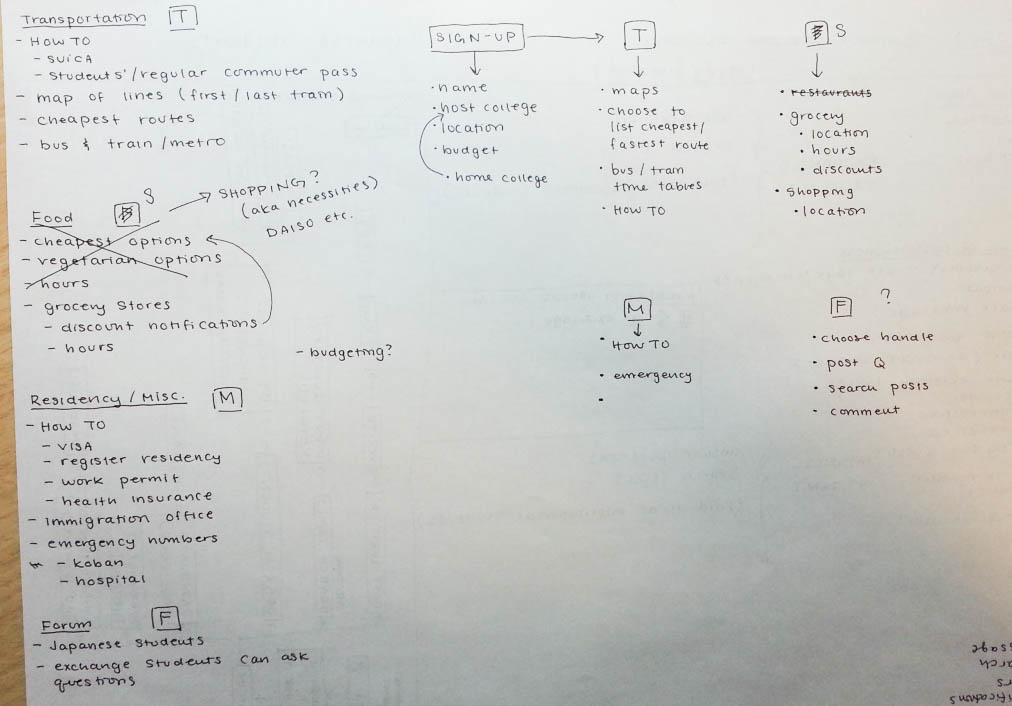 Transportation T
- HOW TO
- SUICA
- students'/regular commuter pass
- map of lines (first/last train)
- cheapest routes
- bus & train/metro
Food S
SHOPPING?
(aka necessities)
DAISO etc.
- cheapest options
- vegetarian options
- hours
- grocery stores
- discount notifications
- hours
- budgeting?
Residency/Misc. M
- HOW TO
- VISA
- register residency
- work permit
- health insurance
- immigration office
- emergency numbers
- koban
- hospital
Forum F
- Japanese students
- exchange students can ask
questions
SIGN-UP
· name
· host college
· location
· budget
· home college
T
· maps
· choose to
list cheapest/
fastest route
· bus/train
time tables
· HOW TO
S
· restaurants
· grocery
· location
· hours
· discounts
· shopping
· location
M
· HOW TO
· emergency
·
F ?
· choose handle
· post Q
· search posts
· comment